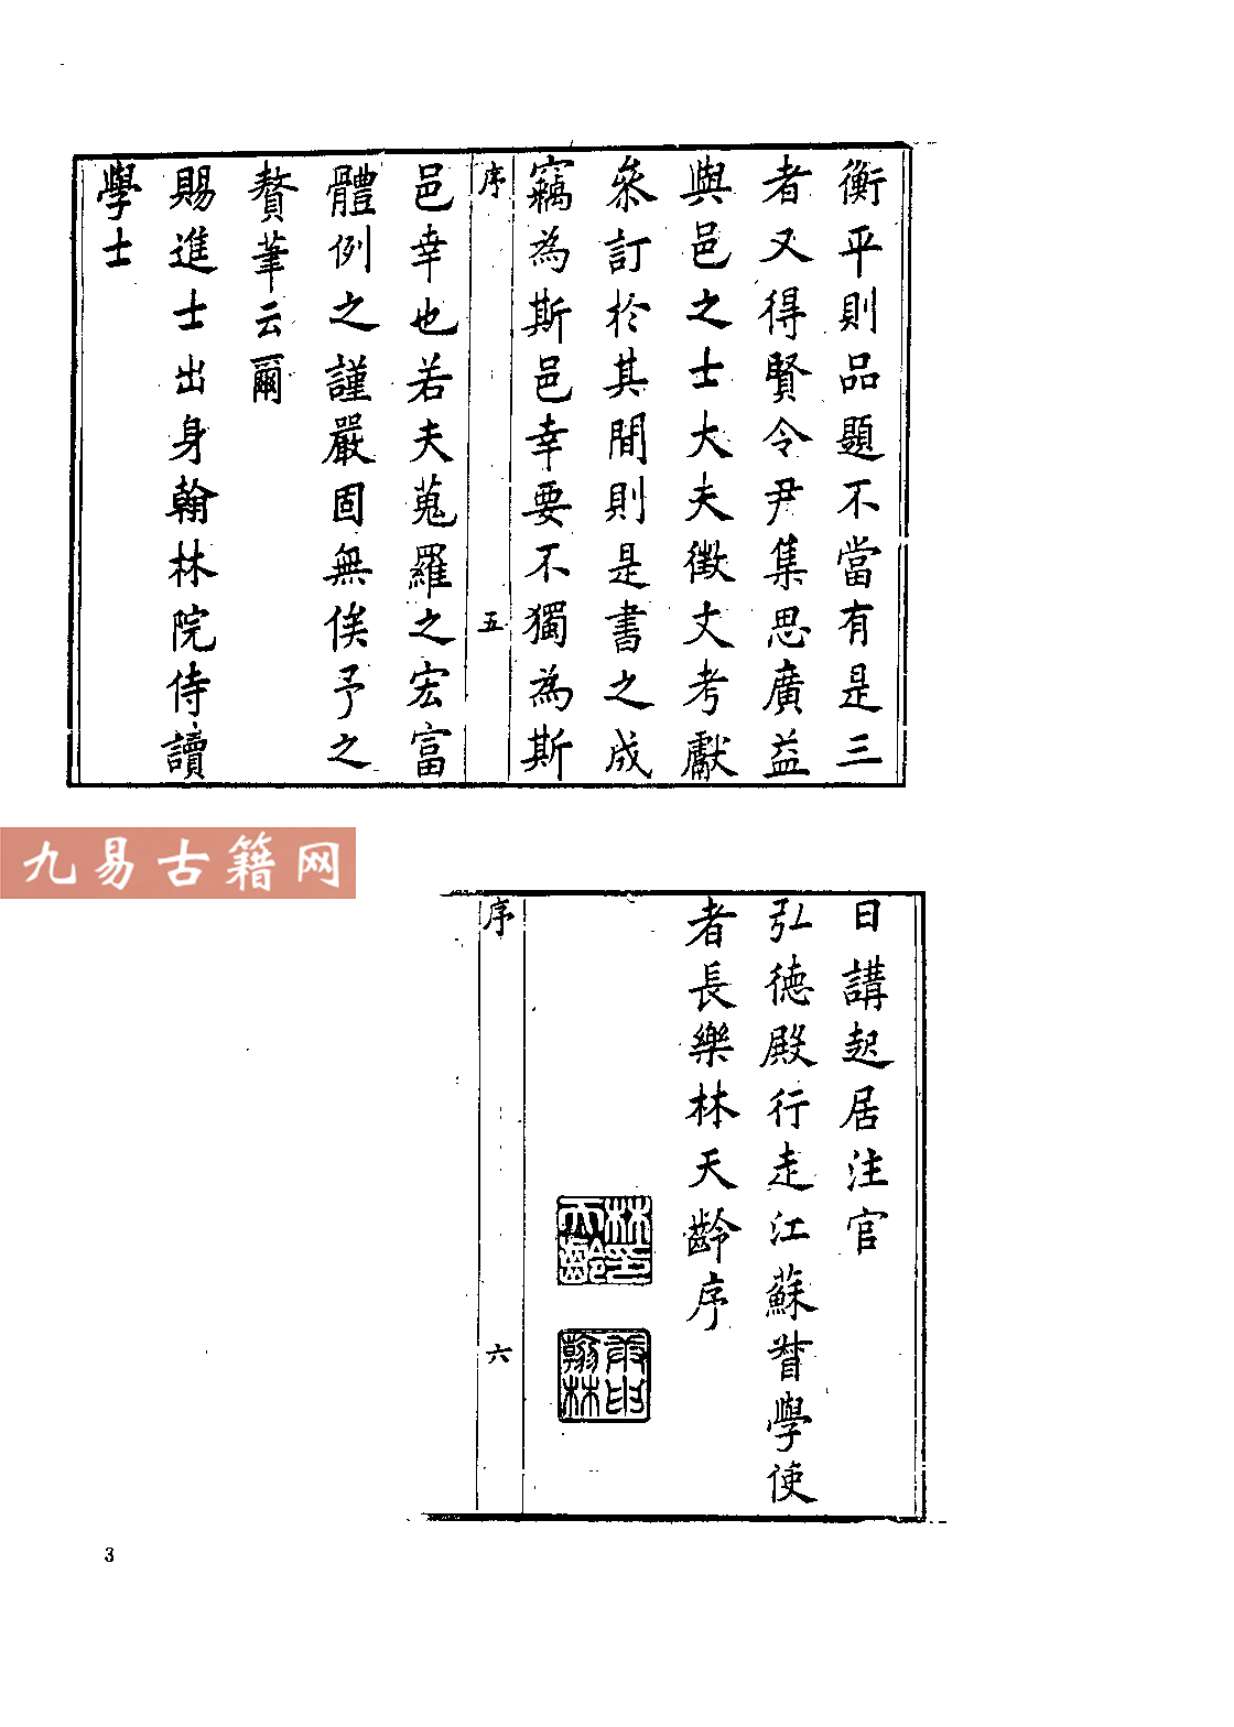 衡平則品題不當有是三
者又得賢令尹集思廣益
與邑之士大夫徵文考獻
叅訂於其間則是書之成
竊為斯邑幸要不獨為斯
序
五
邑幸也若夫蒐羅之宏富
體例之謹嚴固無俟予之
贅筆云爾
賜進士出身翰林院侍讀
學士
九易古籍网
日講起居注官
弘德殿行走江蘇督學使
者長樂林天齡序
林天齡印
翰林
序
六
3